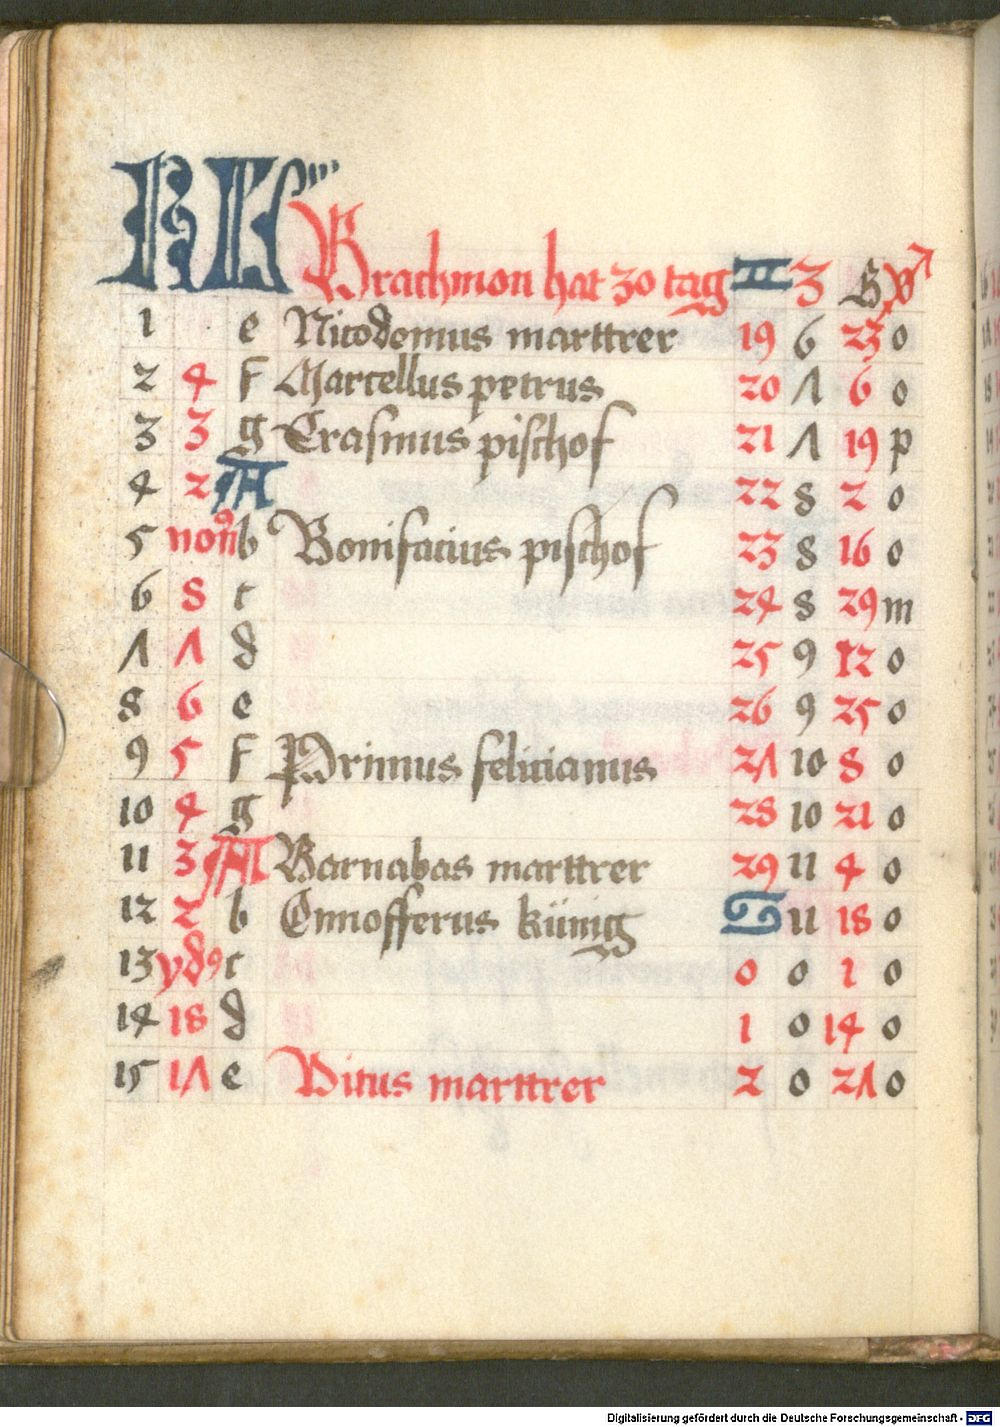 KL Brachmon hat 30 tag ♊ 3 G
1 e Nicodemus marttrer 19 6 23 o
2 4 f Marcellus petrus 20 7 6 o
3 3 g Erasmus pischof 21 7 19 p
4 2 A 22 8 2 o
5 non9 b Bonifacius pischof 23 8 16 o
6 8 c 24 8 29 m
7 7 d 25 9 12 o
8 6 e 26 9 25 o
9 5 f Primus felicianus 27 10 8 o
10 4 g 28 10 21 o
11 3 A Barnabas marttrer 29 11 4 o
12 2 b Onnofferus künig ♋ 11 18 o
13 yd9 c 0 0 1 o
14 18 d 1 0 14 o
15 17 e Vitus marttrer 2 0 27 o
Digitalisierung gefördert durch die Deutsche Forschungsgemeinschaft - DFG